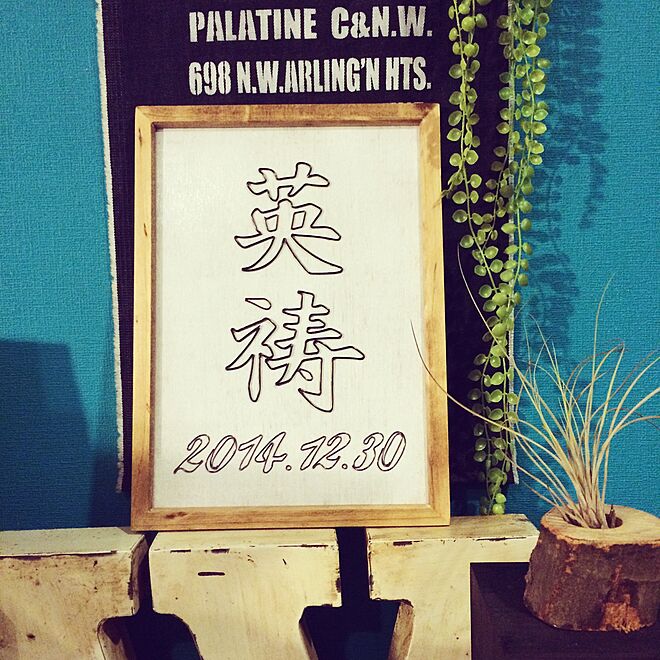 PALATINE C&N.W.
698 N.W.ARLING'N HTS.
英
祷
2014.12.30